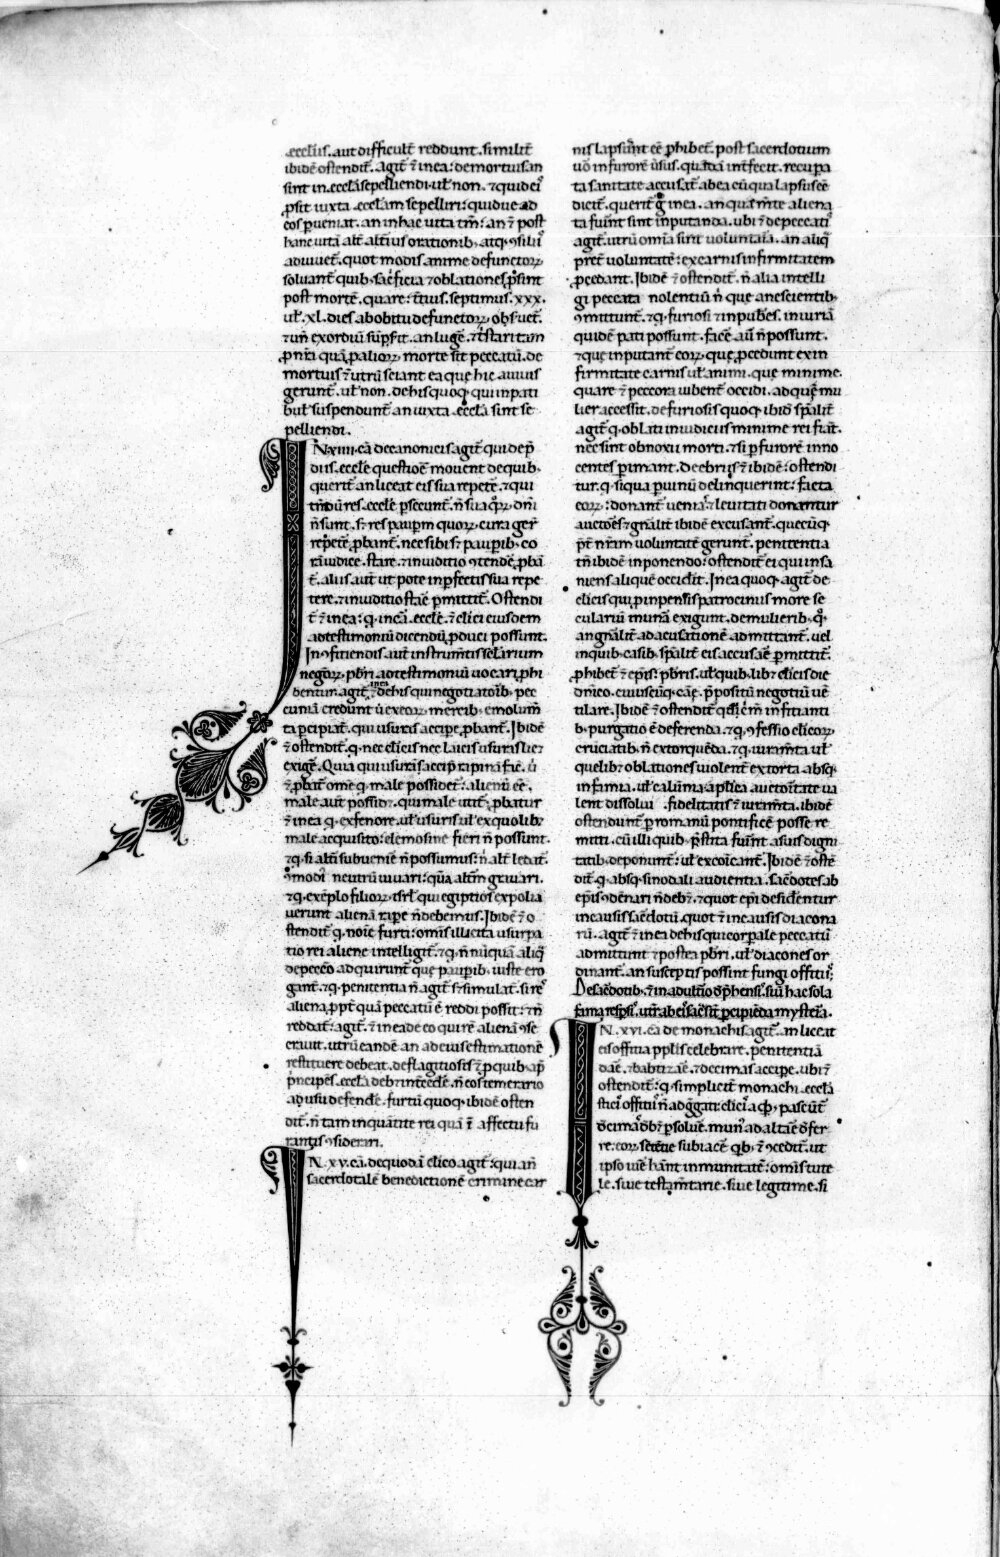 ęccliis. aut difficult̄ reddunt. similit̄
ibidē ostendit̄. agit̄ ⁊̄ in ea: de mortuis an
sint in ęccl̄a sepelliendi. ul̄ non. ⁊ quid ei᷒
ꝓsit iuxta ęccl̄am sepelliri: quidue ad
eos ꝑueniat. an in hac uita tm̄: an ⁊̄ post
hanc uitā alt̄ alt̄ius orationib; atq; ꝯsiliis
adiuuet̄. quot modis anime defunctoꝝ
soluant̄ quib; sac̄ficia ⁊ oblationes ꝓsint
post mortē. quare: t̄tius. septimus. xxx.
ul̄. xl. dies ab obitu defunctoꝝ obs̄uet̄.
⁊ un̄ exordiū sūpserit. an luge᷒ ⁊ t̄stari tam
ꝓ n̄ra quā ꝓ alioꝝ morte sit peccatū. de
mortuis ⁊̄ utrū sciant ea que hic a uiuis
gerunt̄. ul̄ non. de his quoq; qui in pati
bul̄ suspendunt̄ an iuxta ęccl̄a sint se
pelliendi.
IN. xiiii. cā de canonicis agit̄ qui de p̄
diis. eccl̄e questioē mouent de quib;
querit̄ an liceat eis sua repete᷒. ⁊ qui
res eccl̄e ꝓsecunt̄. n̄ sua
n̄ sunt. s; res pauꝑm quoꝝ cura ger̄
repete᷒ ꝓbant̄. nec sibi s; pauꝑib; co
rā iudice. stare. ⁊ in iuditio ꝯtende᷒ ꝓbā
t̄. aliis aut̄ ut pote inꝑfectis sua repe
tere. ⁊ in iuditio stare ꝑmittit̄. Ostendi
t̄ ⁊̄ in ea: q̄ in cā eccl̄e. ⁊̄ cl̄ici eiusdem
ad testimoniū dicendū ꝓduci possunt.
In ꝯfitiendis. aut̄ instrum̄tis sc̄larium
negoꝝ. pb̄ri ad testimoniū uocari ꝓhi
bentur. agit̄ ⁊̄ in ea de his qui negotiatoib; pec
cuniā credunt ū ex eoꝝ mercib; emolum̄
ta ꝑcipiāt. qui usuras accipe᷒ ꝓbant̄. Ibidē
⁊̄ ostendit̄. q̄ nec cl̄icis nec laicis usuras lic;
exige᷒. Quia qui usuras accip̄ rapinā fac̄. ū
⁊̄ ꝓbat̄ om̄e q̄ male possidet̄: alienū ēē.
male aut̄ possid;. qui male utit̄. ꝓbatur
⁊̄ in ea q̄ ex fenore. ul̄ usuris ul̄ ex quolib;
male acquisito: elemosine fieri n̄ possunt.
⁊ q̄ si altū subuenire n̄ possumus: n̄ alt̄ ledat̄.
ꝯmodi᷒ neutrū iuuari: quā altm̄ grauari.
⁊ q̄. exēplo filioꝝ. isrl̄ qui egiptios expolia
uerunt alienā ripe᷒ n̄ debemus. Ibidē ⁊̄ o
stendit̄ q̄. noīe furti: om̄is illicita usurpa
tio rei aliene intelligit̄. ⁊ q̄. n̄ nūquā aliq̄
de pecc̄o adquirunt̄ que pauꝑib; iuste ero
gant̄. ⁊ q̄. penitentia n̄ agit̄ s; simulat̄. si res
aliena ꝓpt̄ quā peccatū ē reddi possit: ⁊ n̄
reddat̄: agit̄. ⁊̄ in eadē eo qui rē alienā ꝯse
cauit. utrū eandē an ad eius estimationē
restituere debeat. de flagitiosis ⁊̄ ꝑ quib; ap̄
p̄ncipes. eccl̄a deb; in̄tcede᷒. n̄ eos temerario
ausu defende᷒. furtū quoq; ibidē osten
dit̄. n̄ tam in quātitate rei quā ī affectu fu
rantis ꝯsiderari.
IN. xv. cā. de quodā cl̄ico agit̄: qui an̄
sacerdotalē benedictionē crimine car
nis laps᷒ fuisset ēē ꝓhibet̄. post sacerdotium
uō in furorē ūsus. quādā int̄fecit. recupa
ta sanitate accusat̄ ab ea cū qua lapsus ēē
dicit̄. querit̄ g᷒ in ea. an qua m̄te aliena
ta fuīnt sint inputanda. ubi ⁊̄ de peccatis
agit̄. utrū om̄ia sint uoluntaria. an aliq̄
p̄ret̄ uoluntatē: ex carnis infirmitatem
ꝓcedant. Ibidē ⁊̄ ostendit̄. n̄ alia intelli
gi peccata nolentiū n̄ que a nescientib;
ꝯmittunt̄. ⁊ q̄. furiosi ⁊ inpub᷒es. iniuriā
quidē pati possunt. face᷒ aū n̄ possunt.
⁊ que inputant̄ eoꝝ. que ꝓcedunt ex in
firmitate carnis ul̄ animi. que minime.
quare ⁊̄ peccora iubent̄ occidi. ad quē mu
lier accessit. de furiosis quoq; ibidē spāliter
agit̄ q̄. oblati in iudicius minime rei fiāt̄.
nec sint obnoxii morti. ⁊ si ꝑ furorē inno
centes ꝑimant. De ebriis ⁊̄ ibidē: ostendi
tur. q̄. si qua ꝑ uinū delinquerint: facta
eoꝝ: donant̄ uenia᷒ ⁊ leuitati donantur
auctores ⁊ gn̄alit̄ ibidē excusant̄. quecūq;
p̄t n̄ram uoluntatē gerunt̄. penitentia
tn̄ ibidē inponendo: ostendit̄ ei qui insa
niens aliquē occidit. In ea quoq; agit̄ de
cl̄icis qui ꝓ inpensis patrociniis more se
culariū munera exigunt. de mulierib; q̄.
an gn̄alit̄ ad acusationē admittant̄. uel
in quib; casib; sp̄alit̄ eis accusare ꝑmittit̄.
ꝓhibet̄ ⁊̄ ep̄is: pb̄ris. ul̄ quib; lib; cl̄icis die
dn̄ico. cuiuscūq; cāe᷒. p̄positū negotiū uē
tilare. Ibidē ⁊̄ ostendit̄ in fitianti
b; purgatio ē deferenda. ⁊ q̄. ꝯfessio cl̄icoꝝ
cruciatib; n̄ extorquēda. ⁊ q̄. iuram̄ta ul̄
quelib; oblationes uiolent̄ extorta absq;
infamia. ul̄ calūnia aplica auctoritate ua
lent dissolui. fidelitatis ⁊̄ iuram̄ta. ibidē
ostendunt̄ ꝑ romanū pontificē posse re
mitti. cū illi quib; p̄stita fuīnt a suis digni
tatib; deponunt̄: ul̄ excōīcant̄. Ibidē ⁊̄ oste᷒
dit̄. q̄. absq; sinodali audientia. sac̄dotes ab
ep̄is ꝯdēnari n̄ deb;. ⁊ quot ep̄i desid̄entur
in causis sac̄dotū. quot ⁊̄ in causis diacona
rū. agit̄ ⁊̄ in ea de his qui corꝑale peccatū
admittunt ⁊ postea pb̄ri. ul̄ diacones or
dinant̄. an susceptis possint fungi offitiis.
De sac̄dotib; ⁊̄ in adult̄io dep̄hensi. siue hac sola
fama respsi. utrum ab eis sac̄sc̄ā ꝑcipiēda mysteria.
IN. xvi. cā de monachis agit̄. an liceat
eis offitia ppl̄is celebrare. penitentiā
dare. ⁊ babtizare. ⁊ decimas accipe᷒. ubi ⁊̄
ostendit̄: q̄. simplicit̄ monachi. ęccl̄a
stici offitiū n̄ adgregati: cl̄ici a quib; pascūt̄
decimā deb; ꝑsolue᷒. mun᷒ ad altare defer
re. eoꝝ. sentētie subiacēt qb; ⁊̄ ꝯcedit̄. ut
ipso iure habeant inmunitatē: om̄is tute
le. siue testam̄tarie. siue legitime. si